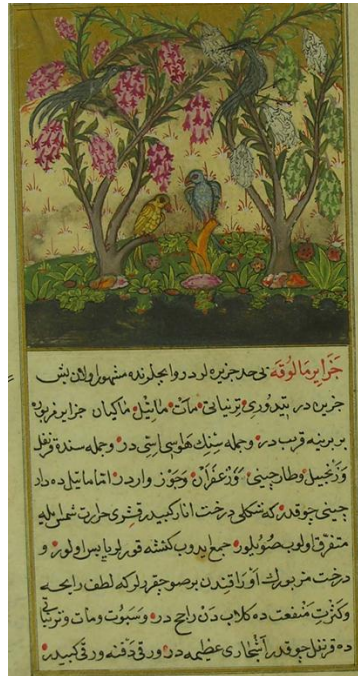 جزایر مالوقه بی حد جزیره لردر و ایچلرنده مشهور اولان بش
جزیره در تیدوری ترنیاتی مات ماتیل ماکیان جزایر مزبوره
بر برینه قریب در و جمله سنك هواسی استی در و جمله سنده قرنفل
وزنجبیل و طارچینی وزعفران وجوز واردر اما ماتیل ده دار
چینی چوقدر که شکلی درخت انار کبیدر قشری حرارت شمس ایله
متفرق اولوب صویلور جمع ایدوب کنشده قورلر یابس اولور و
درخت مزبورك اوراقندن بر صو چقردلر که لطف رایحه
وکثرت منفعت ده کلاب دن راجح در وسبوت ومات وترنیاتی
ده قرنفل چوقدر اشجاری عظیمه در ورقی دفنه ورقی کبیدر